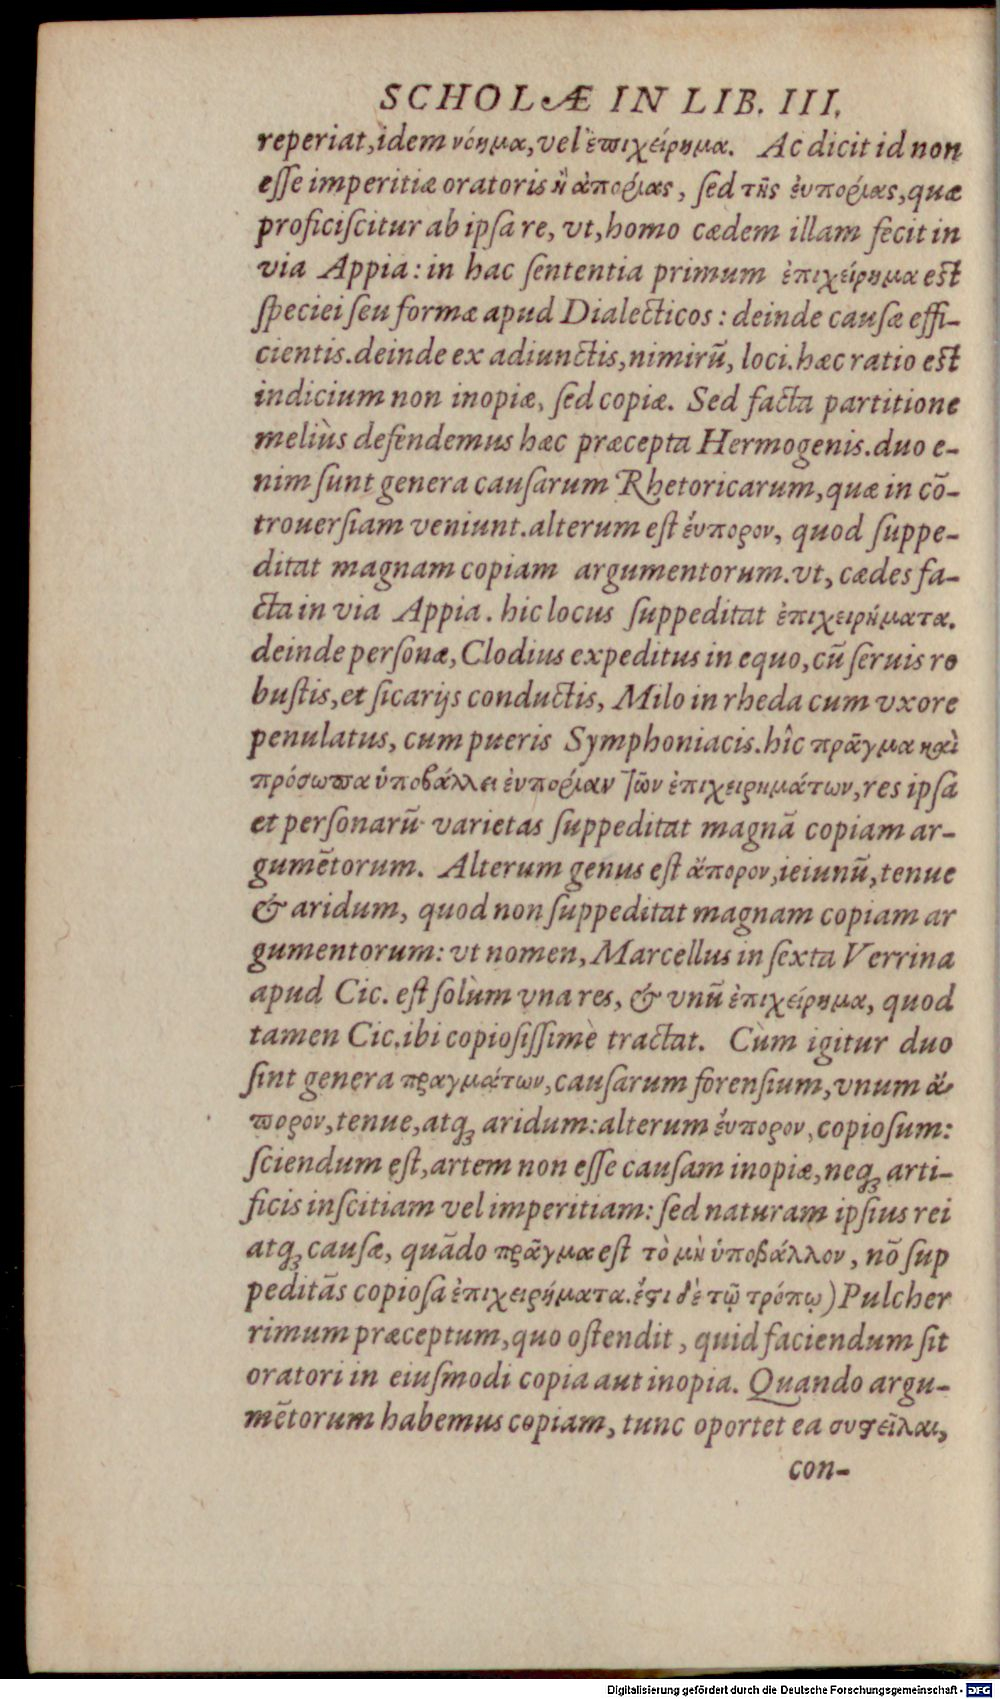 SCHOLÆ IN LIB. III.
reperiat, idem νόημα, vel ἐπιχείρημα. Ac dicit id non
esse imperitiæ oratoris ἢ ἀπορίας, sed τῆς ἐυπορίας, quæ
proficiscitur ab ipsa re, vt, homo cædem illam fecit in
via Appia: in hac sententia primum ἐπιχείρημα est
speciei seu formæ apud Dialecticos: deinde causæ effi-
cientis. deinde ex adiunctis, nimirũ, loci. hæc ratio est
indicium non inopiæ, sed copiæ. Sed facta partitione
meliùs defendemus hæc præcepta Hermogenis. duo e-
nim sunt genera causarum Rhetoricarum, quæ in cõ-
trouersiam veniunt. alterum est ἔυπορον, quod suppe-
ditat magnam copiam argumentorum. vt, cædes fa-
cta in via Appia. hic locus suppeditat ἐπιχειρήματα.
deinde personæ, Clodius expeditus in equo, cũ seruis ro
bustis, et sicarijs conductis, Milo in rheda cum vxore
penulatus, cum pueris Symphoniacis. hîc πρᾶγμα καὶ
πρόσωπα ὑποβάλλει ἐυπορίαν τῶν ἐπιχειρημάτων, res ipsa
et personarũ varietas suppeditat magnã copiam ar-
gumẽtorum. Alterum genus est ἄπορον, ieiunũ, tenue
& aridum, quod non suppeditat magnam copiam ar
gumentorum: vt nomen, Marcellus in sexta Verrina
apud Cic. est solùm vna res, & vnũ ἐπιχείρημα, quod
tamen Cic. ibi copiosissimè tractat. Cùm igitur duo
sint genera πραγμάτων, causarum forensium, vnum ἄ
πορον, tenue, atqꝫ aridum: alterum ἔυπορον, copiosum:
sciendum est, artem non esse causam inopiæ, neqꝫ arti-
ficis inscitiam vel imperitiam: sed naturam ipsius rei
atqꝫ causæ, quãdo πρᾶγμα est τὸ μὴ ὑποβάλλον, nõ sup
peditãs copiosa ἐπιχειρήματα. ἔστι δὲ τῷ τρόπῳ) Pulcher
rimum præceptum, quo ostendit, quid faciendum sit
oratori in eiusmodi copia aut inopia. Quando argu-
mẽtorum habemus copiam, tunc oportet ea συστεῖλαι,
con-
Digitalisierung gefördert durch die Deutsche Forschungsgemeinschaft - DFG